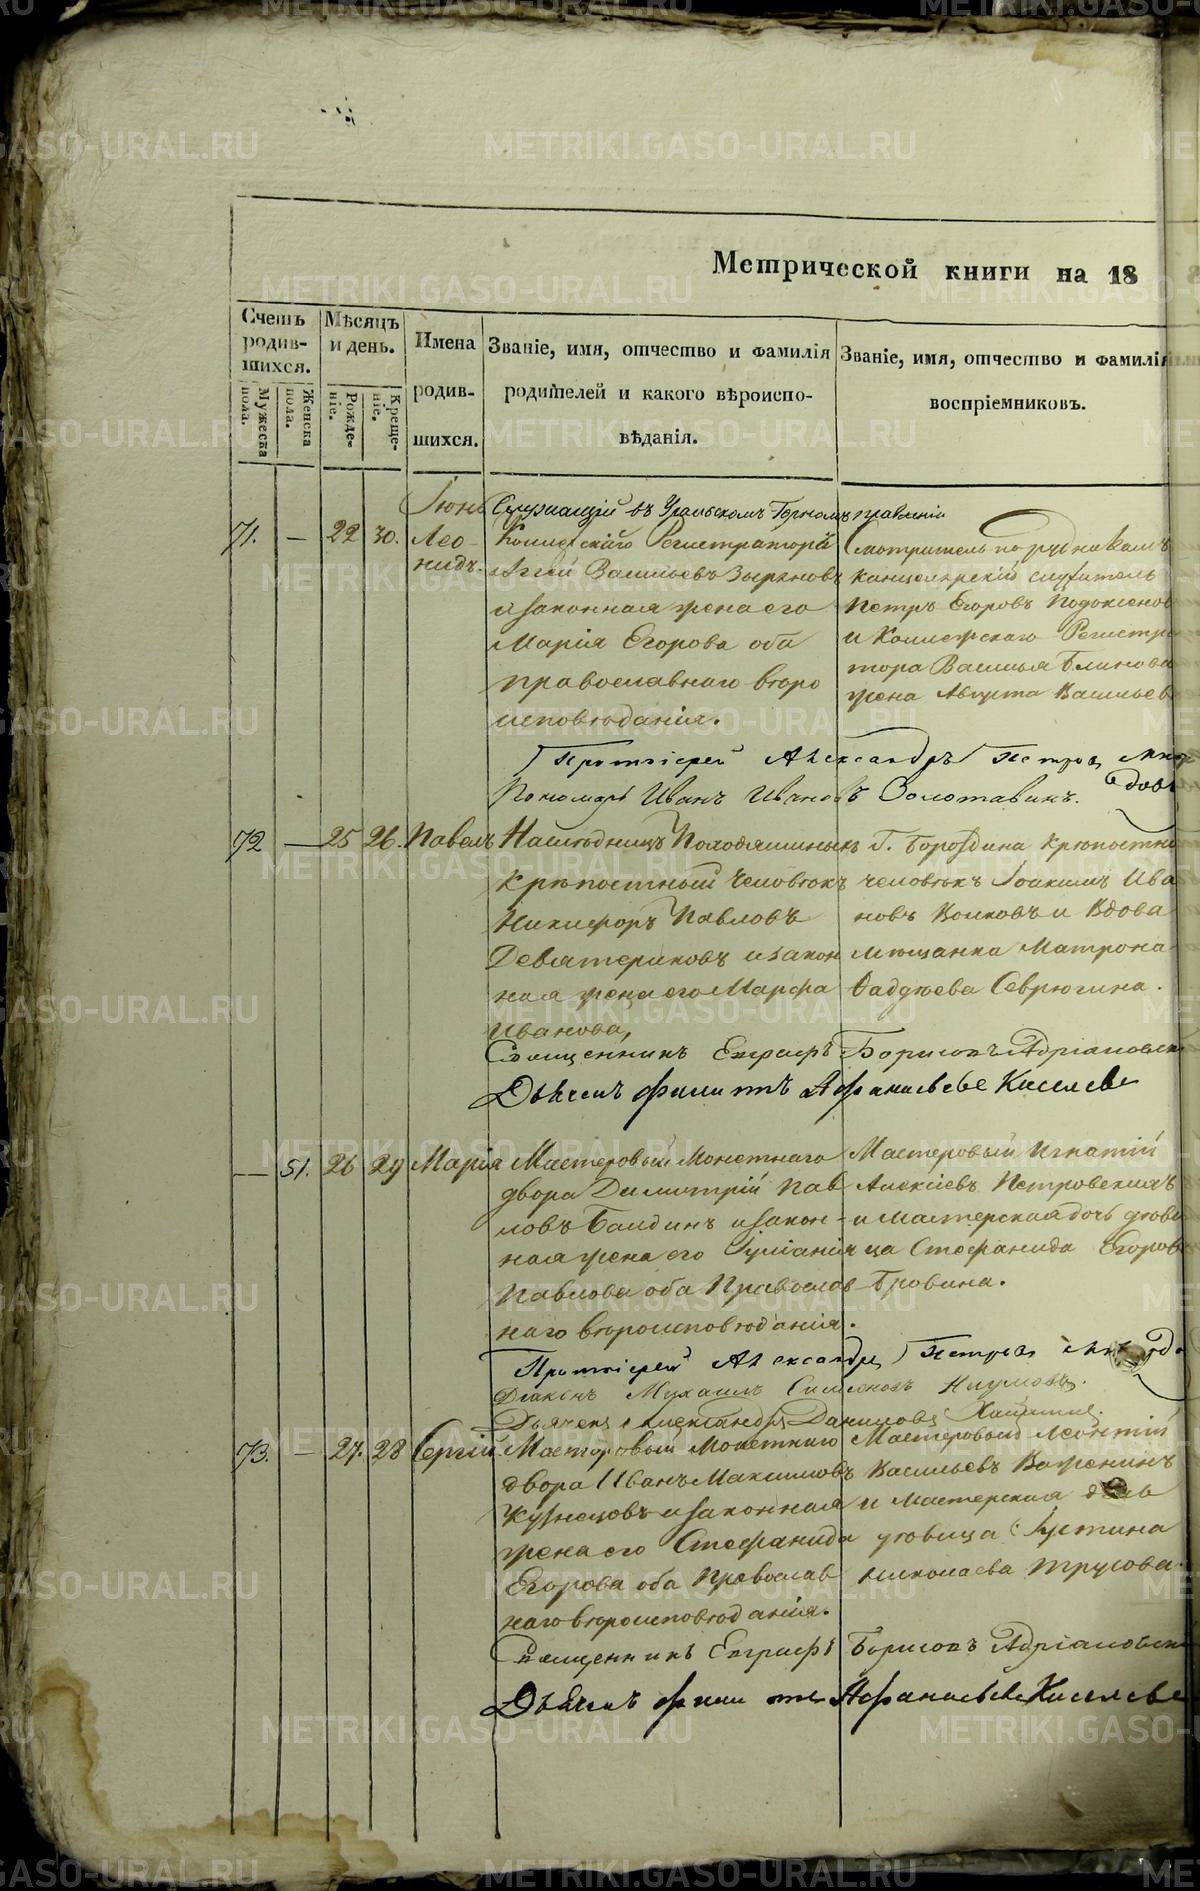 Метрической книги на 18
Счетъ родив- шихся.
Мѣсяцъ и день.
Имена родив- шихся.
Званіе, имя, отчество и фамилія родителей и какого вѣроиспо- вѣданія.
Званіе, имя, отчество и фамилія воспріемниковъ.
Мужеска пола.
Женска пола.
Рожде- ніе.
Креще- ніе.
Іюнь
Служащій въ Уральскомъ Горномъ правленіи
71. — 22 30. Лео- нидъ.
Коллежскаго Регистратора
Васильевъ Зыряновъ
и законная жена его
Марія Егорова оба
православнаго вѣро
исповѣданія.
Смотритель по рудникамъ
канцелярскій служитель
Петръ Егоровъ
и Коллежскаго Регистра
тора Василья Блинова
жена Августа Васильев
Протоіерей Александръ Петровъ
Пономарь Иванъ Ивановъ Золотавинъ.
72 — 25 26. Павелъ
Наслѣдницъ Походяшиныхъ
крѣпостный человѣкъ
Никифоръ Павловъ
Девятериковъ и закон
ная жена его Марфа
Иванова,
Г. Бороздина крѣпостно
человѣкъ Іоакимъ Ива
новъ Волковъ и Вдова
мѣщанка Матрона
Фаддѣева Севрюгина.
Священникъ Евграфъ Борисовъ Адріановск
Дьячекъ Филиппъ Афанасьевъ Киселевъ
— 51. 26 29 Марія
Мастеровый Монетнаго
двора Димитрій Пав
ловъ Балдинъ и закон-
ная жена его Іуліанія
Павлова оба Православ
наго вѣроисповѣданія.
Мастеровый Игнатій
Алексіевъ Петровскихъ
и мастерская дочь дѣви
ца Стефанида Егоров
Бровина.
Протоіерей Александръ Петровъ
Діаконъ Михаилъ Симеоновъ Наумовъ.
Дьячекъ Александръ Даниловъ
73. — 27. 28 Сергій
Мастеровый Монетнаго
двора Иванъ Максимовъ
Кузнецовъ и законная
жена его Стефанида
Егорова оба Православ
наго вѣроисповѣданія.
Мастеровый Леонтій
Васильевъ Важенинъ
и мастерская дочь
дѣвица Іустина
Николаева Трусова.
Священникъ Евграфъ Борисовъ Адріановск
Дьячекъ Филиппъ Афанасьевъ Киселевъ
METRIKI.GASO-URAL.RU